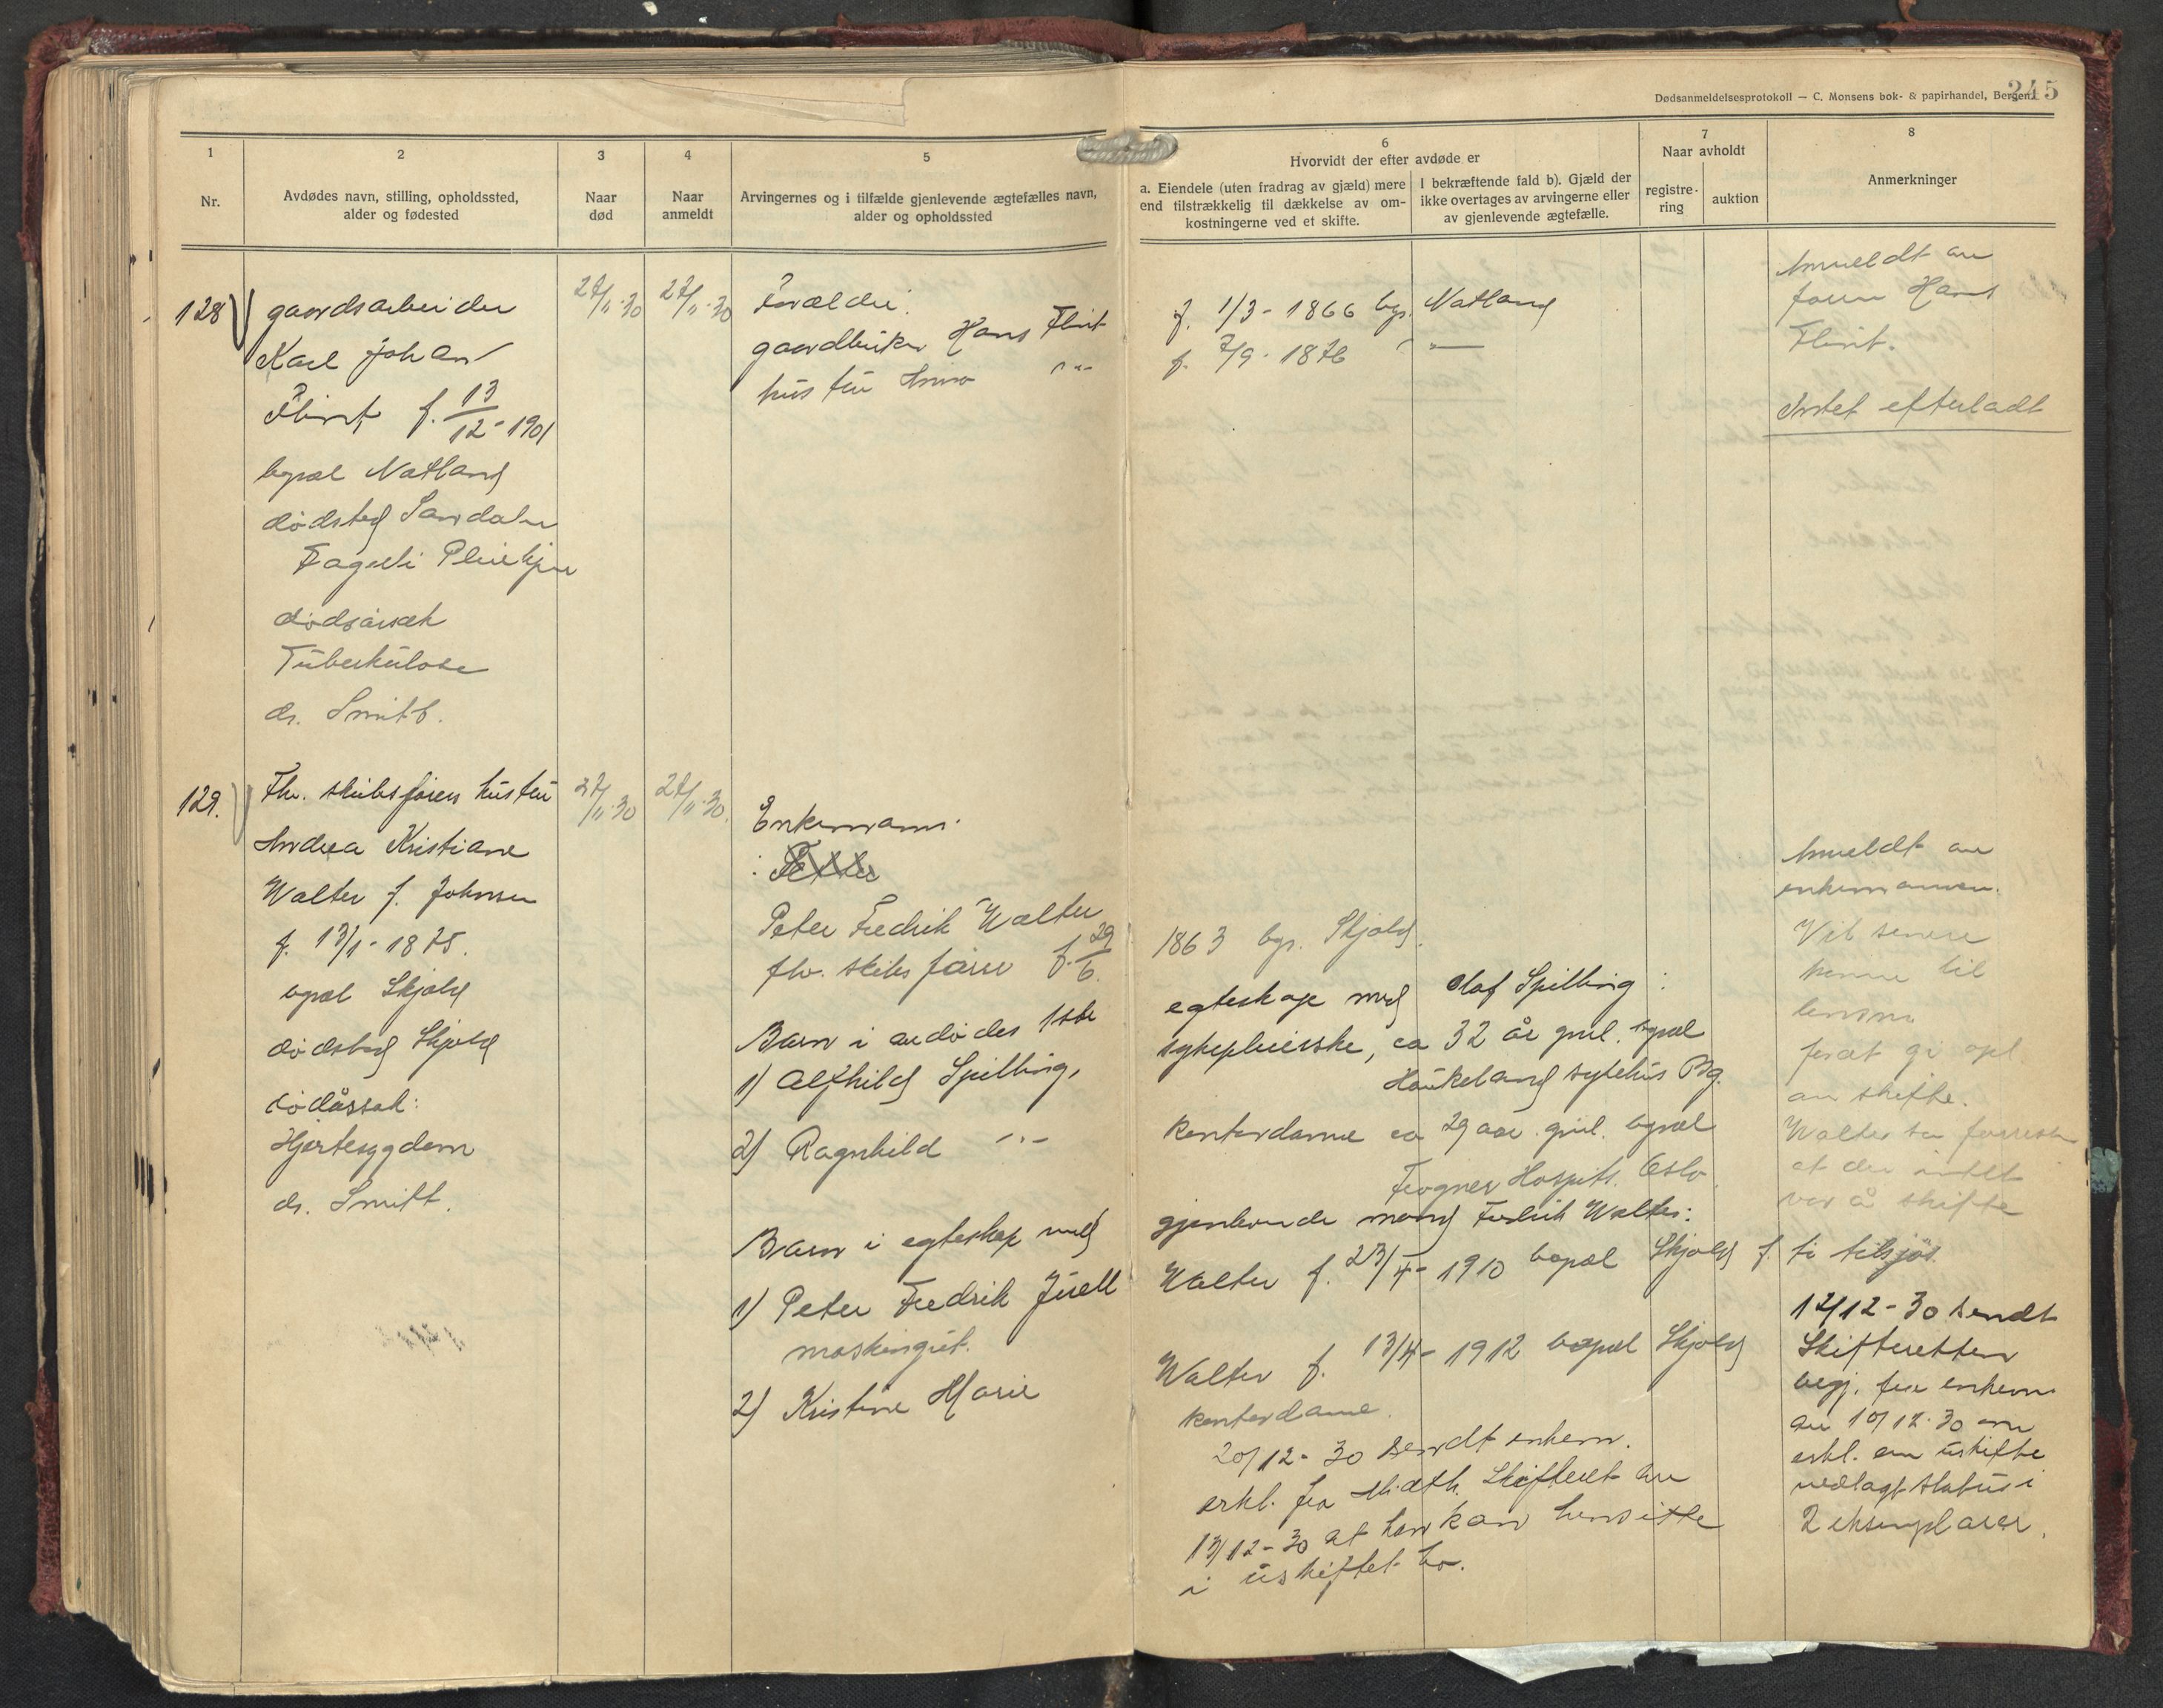 Dødsanmeldelsesprotokoll — C. Monsens bok- & papirhandel, Bergen.
245
1
2
3
4
5
6
7
8
Nr.
Avdødes navn, stilling, opholdssted,
alder og fødested
Naar
død
Naar
anmeldt
Arvingernes og i tilfælde gjenlevende ægtefælles navn,
alder og opholdssted
Hvorvidt der efter avdøde er
a. Eiendele (uten fradrag av gjæld) mere
end tilstrækkelig til dækkelse av om-
kostningerne ved et skifte.
I bekræftende fald b). Gjæld der
ikke overtages av arvingerne eller
av gjenlevende ægtefælle.
Naar avholdt
registre-
ring
auktion
Anmerkninger
128
gaardsarbeider
Karl Johan
Flint, f. 13/12-1901
bopæl Natland
dødsted Sandalen
Pleiehjem
dødsårsak
Tuberkulose
dr. Smitt.
27/11-30
27/11-30
Forældre:
gaardbruker Hans Flint
hustru Anna -"-
f. 1/3-1866 bop. Natland
f. 7/9-1876 -"-
Anmeldt av
faren Hans
Flint.
Intet efterladt
129.
Fhv. skibsførers hustru
Andrea Kristiane
Walter f. Johnsen
f. 13/1-1875.
bopæl Skjold
dødsted Skjold
dødårsak:
Hjertesygdom
dr. Smitt.
27/11-30
27/11-30
Enkemann:
Peter Fredrik Walter
fhv. skibsfører f. 29/6.
1863 bop. Skjold.
Barn i avdødes 1ste
egteskap med Olaf Spilling:
1) Alfhild Spilling,
sykepleierske, ca 32 år gml. bopæl
Haukeland sykehus Bg.
2) Ragnhild -"-
kontordame ca 29 aar gml. bopæl
Frogner Hospits. Oslo.
Barn i egteskap med
gjenlevende mand Fredrik Walter:
1) Peter Fredrik Juell
Walter f. 23/4-1910 bopæl Skjold f. ti tilsjøs.
maskingut.
2) Kristine Marie
Walter f. 13/4-1912 bopæl Skjold
kontordame.
20/12-30 sendt enkem.
erkl. fra Midth. Skifteret av
13/12-30 at han kan hensitte
i uskiftet bo.
Anmeldt av
enkemannen.
Vil senere
komme til
lensm.
forat gi opl.
om skifte.
at der intet
var å skifte
12/12-30 sendt
Skifteretten
begj. fra enkem.
av 10/12-30 om
erkl. om uskifte
vedlagt status i
2 eksemplarer.